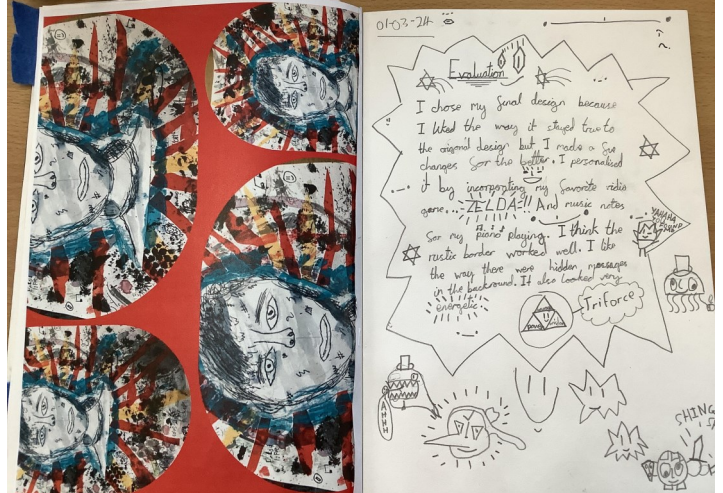 01-03-24
Evaluation
I chose my final design because
I liked the way it stayed true to
the original design but I made a few
changes for the better. I personalised
it by incorporating my favorite vidio
game... ZELDA!!! And music notes
for my piano playing. I think the
rustic border worked well. I like
the way there were hidden messages
in the backround. It also looked very
energetic.
Triforce
YAHAHA
AHHH
SHING